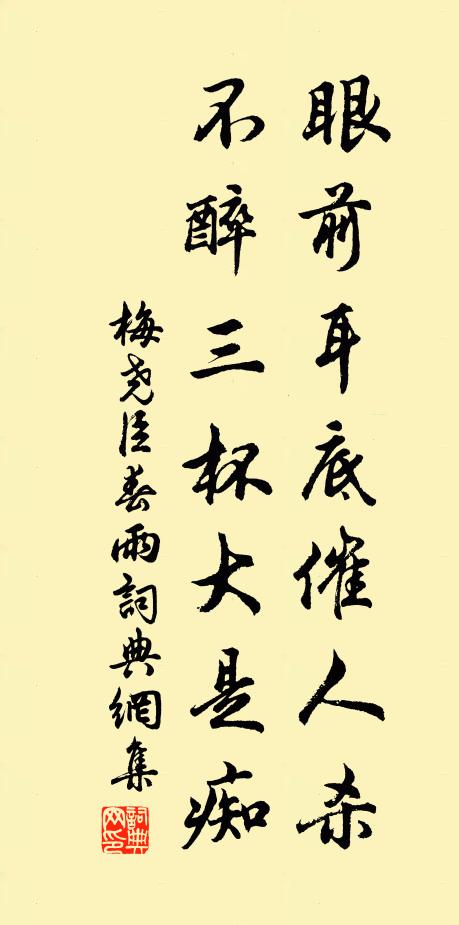 眼前耳底催人杀
不醉三杯大是痴
梅尧臣春雨詞典網集
詞典网印